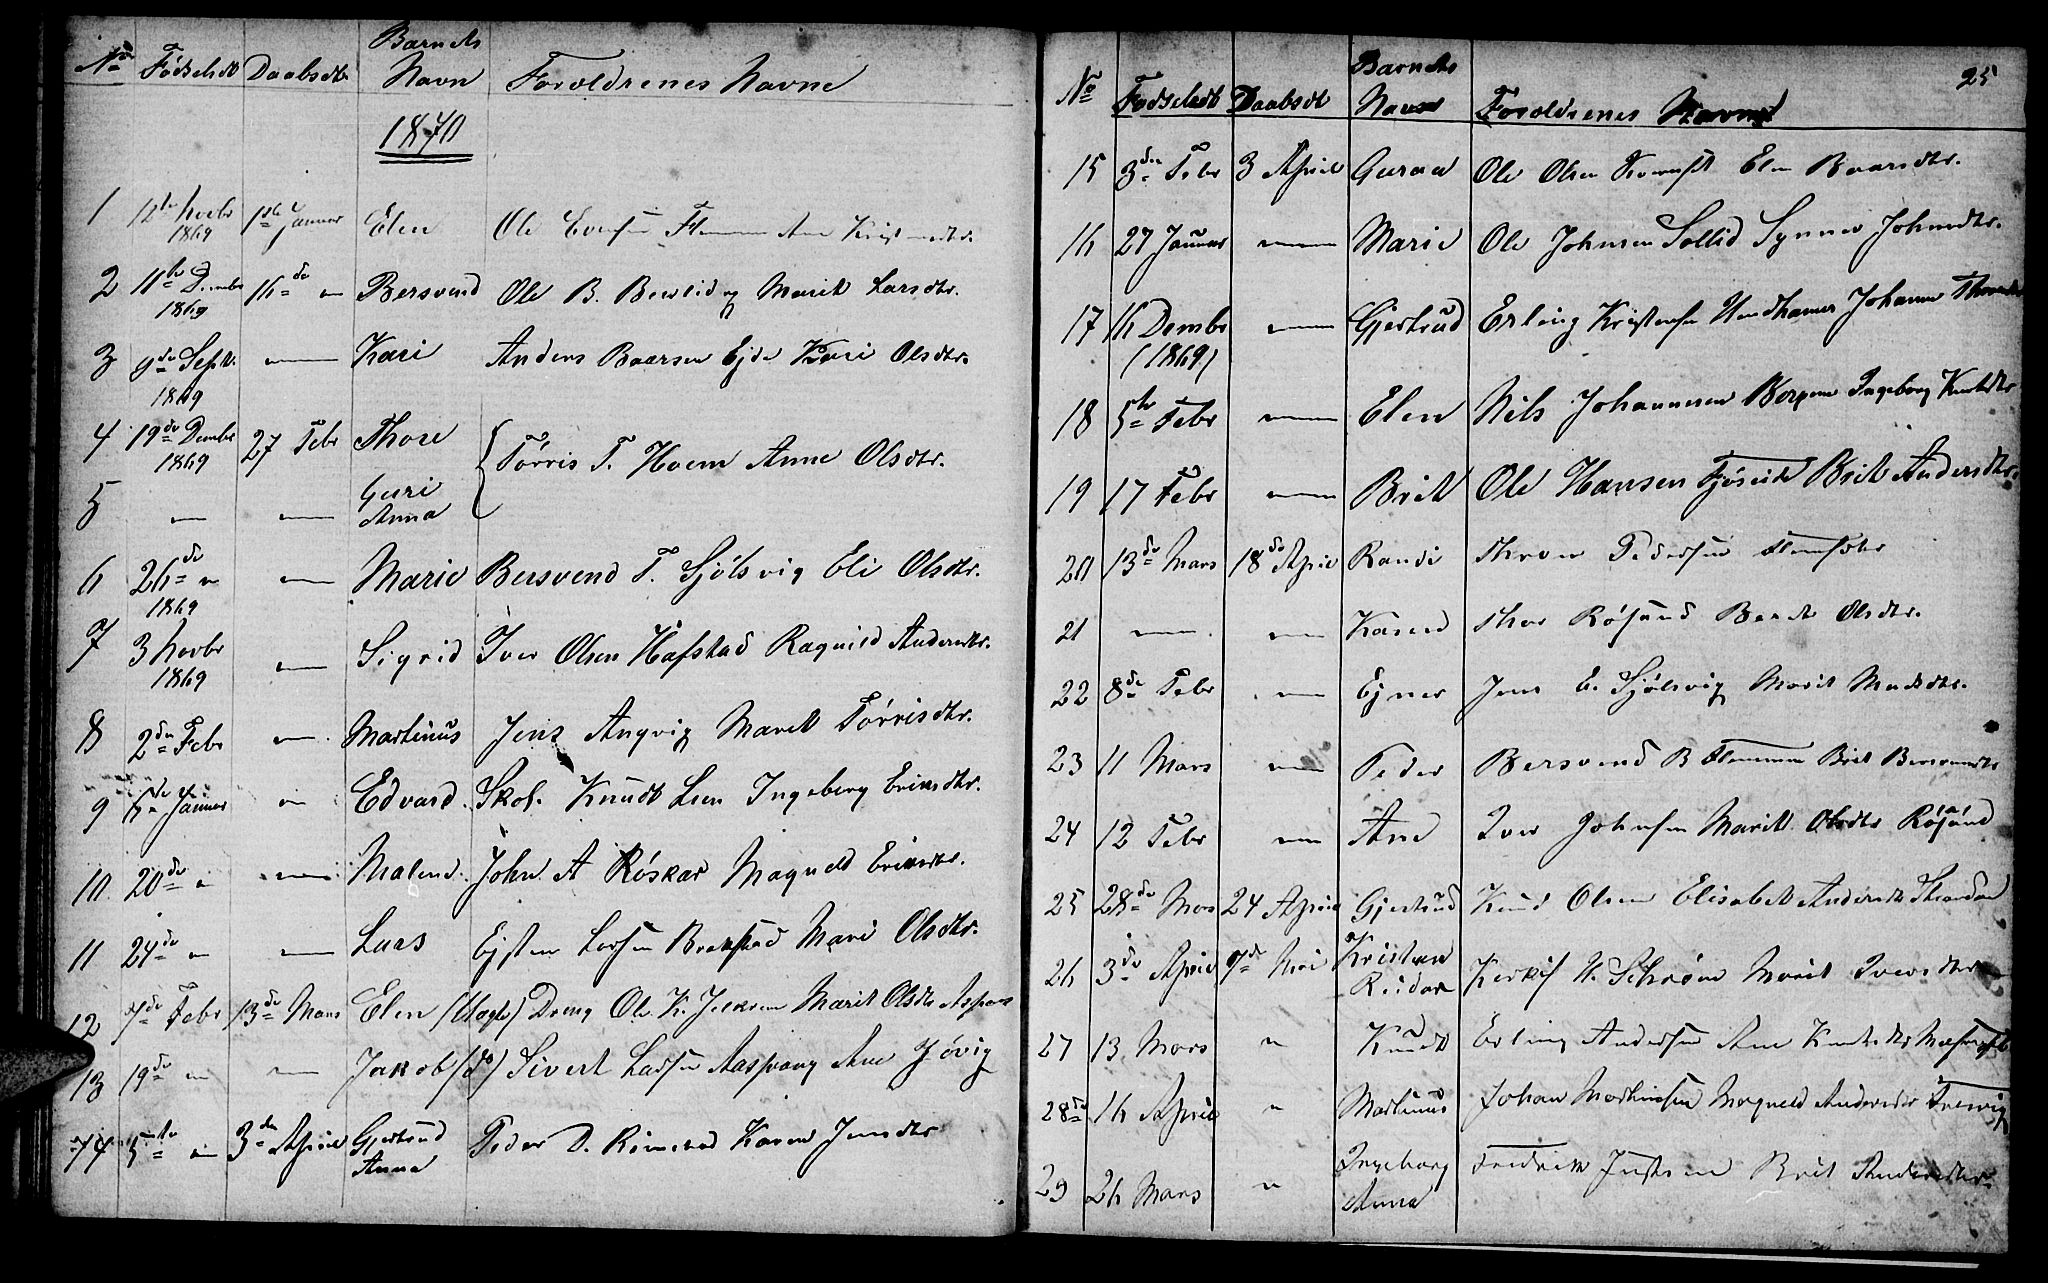 No Fødseldt Daabsdt Barnets Navn Foroldrenes Navne
1870
1 12te Novbr 1869 1ste Januar Elen Ole Evensen
2 11te Dembr 1869 16de " Bersvend Ole B. Berslid og Marit Larsdtr.
3 9de Sept. 1869 — Kari Anders Baarsen Ejde Kari Olsdtr.
4 19de Dembr 1869 27 Febr Thore Tørris T. Hoem Anne Olsdtr.
5 — — Guri Anna
6 26de " 1869 — Marie Bersvend T. Sjølsvig Eli Olsdtr.
7 3 Novbr 1869 — Sigrid Iver Olsen Hafstad Ragnild Andersdtr.
8 2den Febr — Martinus Jens Angvig Marit Tørrisdtr.
9 6de Januar " Edvard Skol. Knudt Lien Ingeborg Eriksdtr.
10 20de " — Malene John A Røskar Magnild Eriksdtr.
11 24de " — Lars Ejsten Larsen Brekstad Mari Olsdtr.
12 7de Febr 13de Mars Elen (Uægte) Dreng Ole K. Marit Olsdtr
13 19de " — Jakob (do) Sivert Larsen Aaspang Ane Jøvig
14 5te " 3de April Gjertrud Anna Peder D. Rimstad Karen Jensdtr
25
No Fødseldt Daabsdt Barnets Navn Foroldrenes Navne
15 3die Febr 3 April Guraa Ole Olsen Elen Baarsdtr.
16 27 Januar — Marie Ole Johnsen Sollid Synnev Johnsdtr.
17 16 Dembr (1869) — Gjertrud Erling Kristensen Johanne
18 5te Febr — Elen Nils Johannesen Bergem Ingeborg Knutsdtr
19 17 Febr — Brit Ole Hansen Fjøseide Brit Andersdtr.
20 13de Mars 18de April Randi Thron Pedersen
21 — — Karen Thor Røsand Beret Olsdtr.
22 8de Febr — Ejner Jens E. Sjølsvig Marit Madsdtr.
23 11 Mars — Peder Bersvend B Brit Bersvendsdtr
24 12 Febr — Ane Iver Johnsen Marit Olsdtr Røsand
25 28de Mars 24 April Gjertrud Knud Olsen Elisabet Andersdtr Strandan
26 3de April 7de Mai Kristian Reidar Kerkes H. Schrøm Marit Iversdtr
27 13 Mars " Knudt Erling Andersen Ane Knutsdtr
28de 16 April " Martinus Johan Martinsen Magnild Andersdtr
29 26 Mars " Ingeborg Anna Fredrik Justsen Brit Andersdtr.